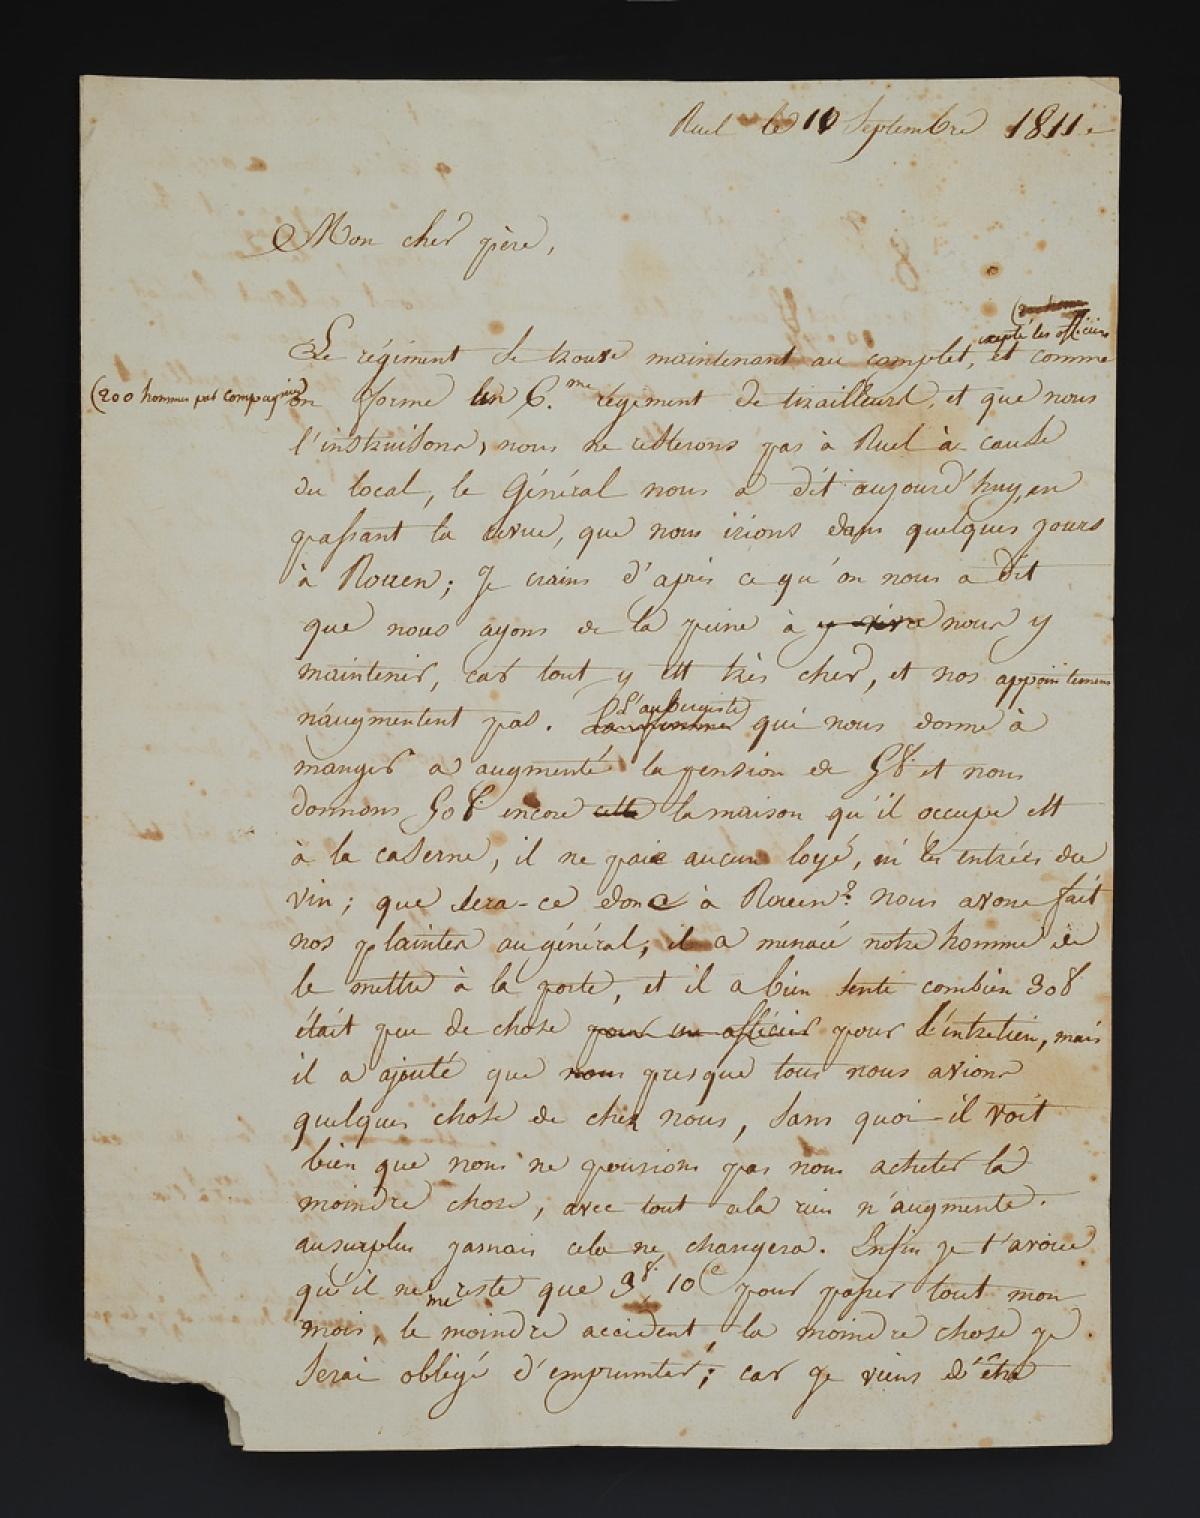 Ruel le 10 Septembre 1811.
Mon cher père,
excepté les officiers
Le régiment se trouve maintenant au complet, et comme
(200 hommes par compagnie) on forme un 6.me régiment de tirailleurs, et que nous
l'instruisons, nous ne resterons pas à Ruel à cause
du local, le Général nous a dit aujourd'huy, en
passant la revue, que nous irions dans quelques jours
à Rouen; Je crains d'après ce qu'on nous a dit
que nous ayons de la peine à y vivre nous y
maintenir, car tout y est très cher, et nos appointemens
n'augmentent pas. L'aubergiste qui nous donne à
manger a augmenté la pension de 5f. et nous
donnons 50f. encore cette la maison qu'il occupe est
à la caserne, il ne paie aucun loyé, ni les entrées du
vin; que sera-ce donc à Rouen? nous avons fait
nos plaintes au général, il a menacé notre homme de
le mettre à la porte, et il a bien senti combien 30f
était peu de chose pour un officier pour l'entretien, mais
il a ajouté que nous presque tous nous avions
quelques chose de chez nous, sans quoi il voit
bien que nous ne pouvions pas nous acheter la
moindre chose, avec tout cela rien n'augmente.
au surplus jamais cela ne changera. Enfin je t'avoue
qu'il ne me reste que 3f. 10c pour passer tout mon
mois, le moindre accident, la moindre chose je
serai obligé d'emprunter; car je viens d'être